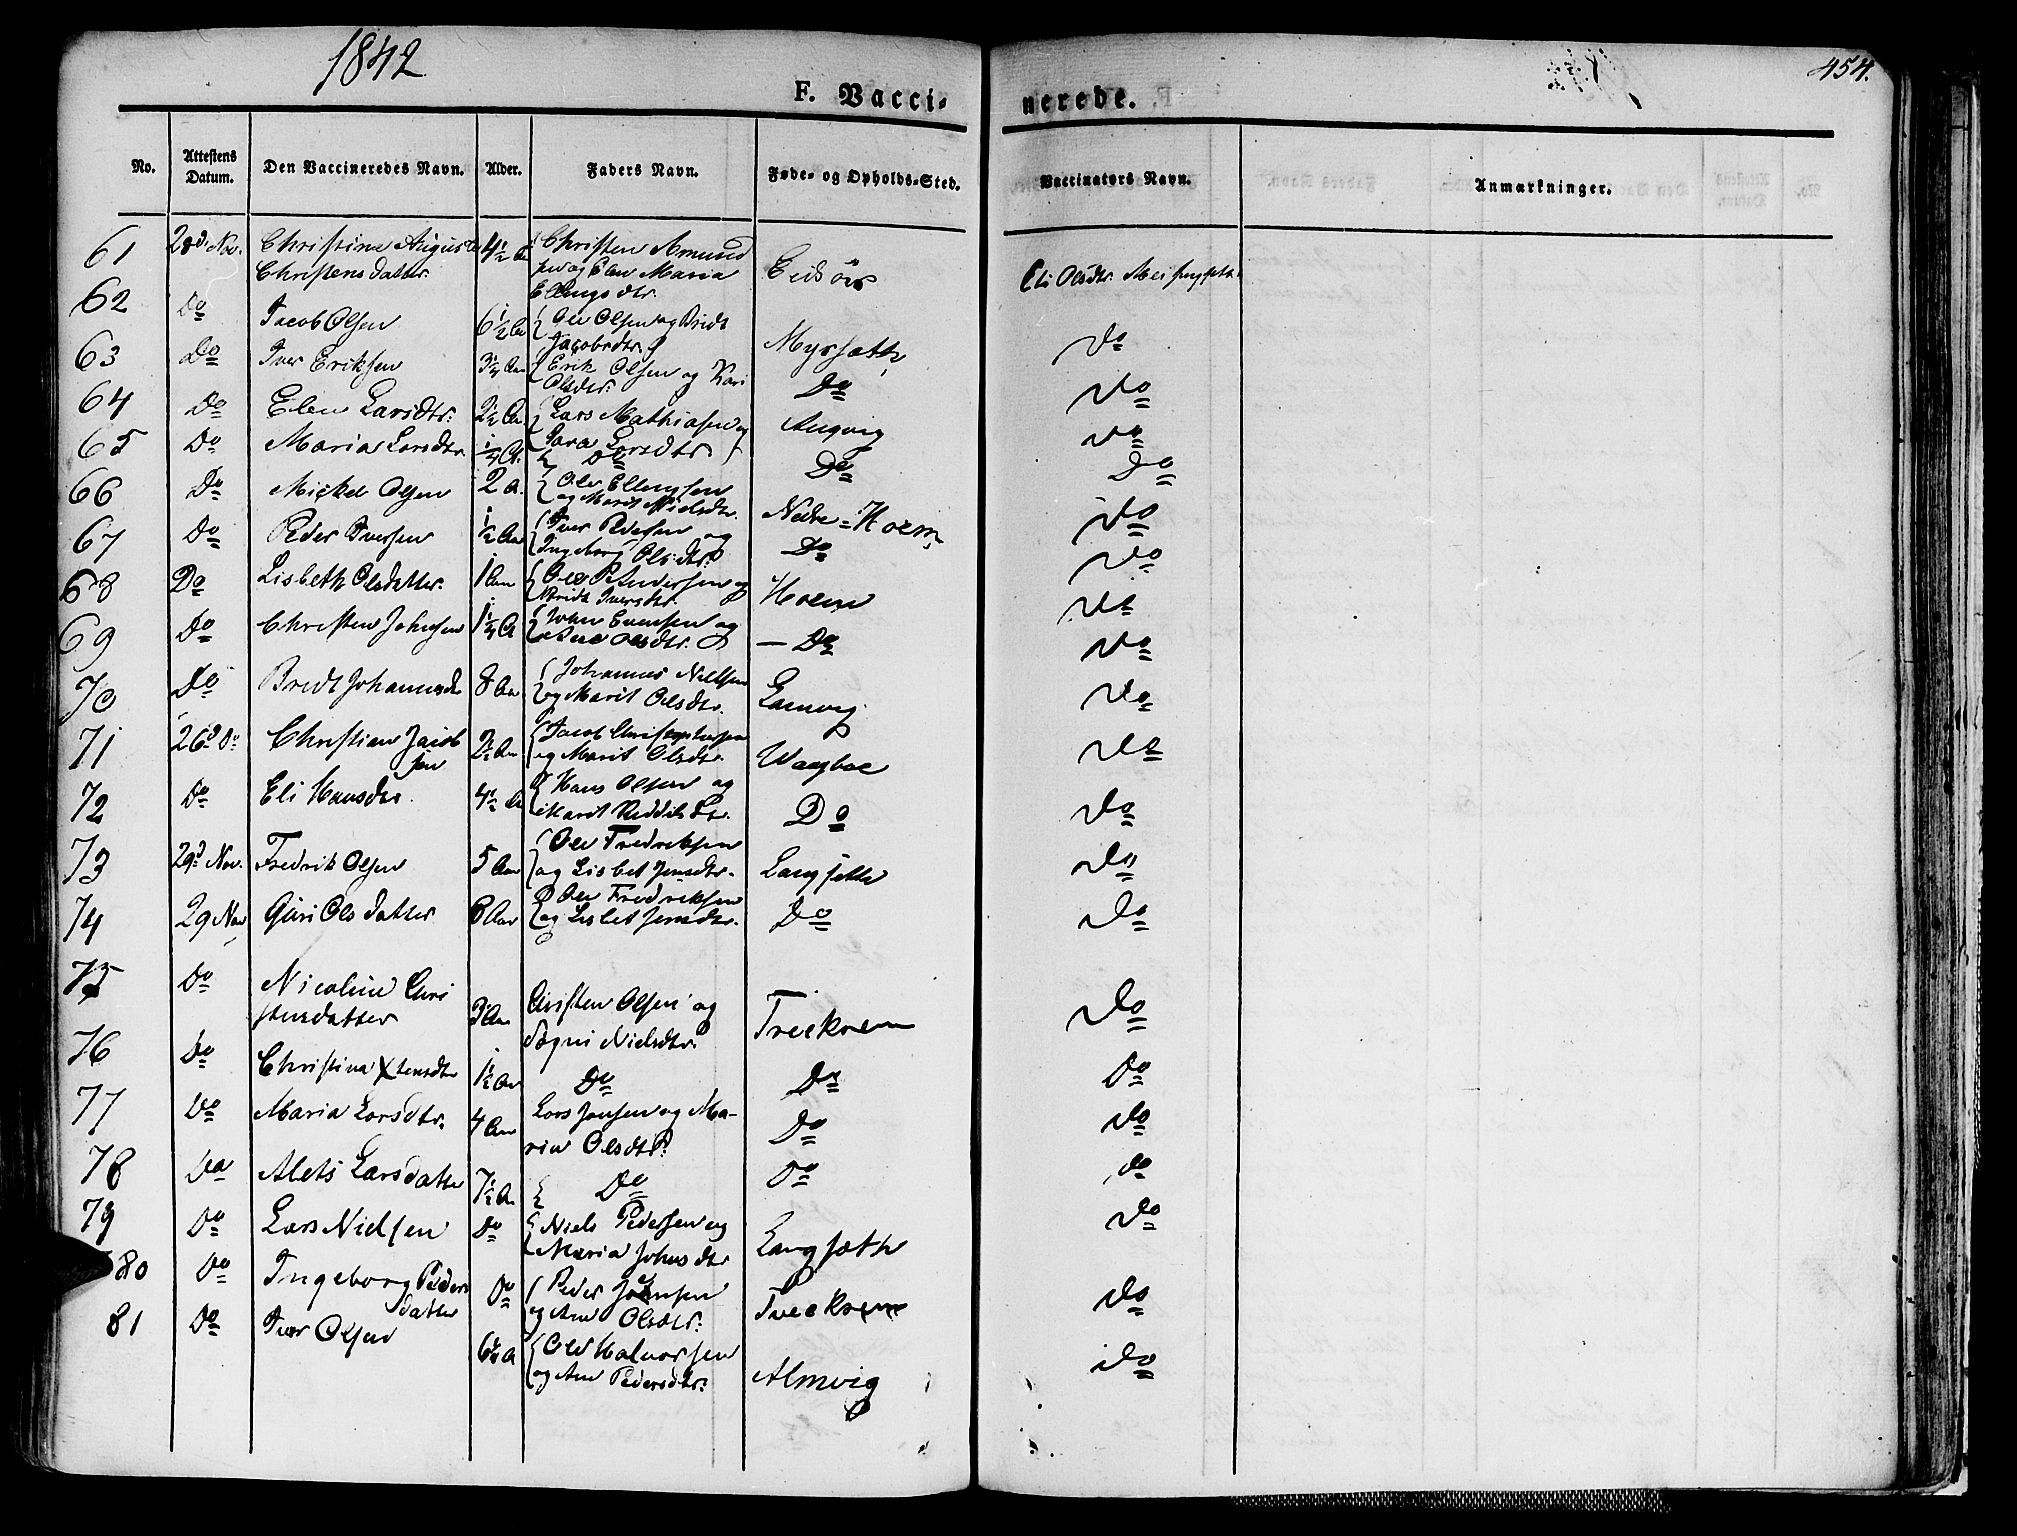 1842
454.
F. Vacci-
nerede.
No.
Attestens Datum.
Den Vaccineredes Navn.
Alder.
Faders Navn.
Føde- og Opholds-Sted.
Vaccinators Navn.
Anmærkninger.
61 28d Nov. Christine Auguste 4½ Christen Amund
Christensdatter sen og Elen Maria Eidsör Eli Olsdtr.
Ellingsdtr.
62 Do Jacob Olsen 6½ Aar Ole Olsen og Bridt
Jacobsdtr. Myrsæth Do
63 Do Iver Eriksen 3¼ Aar Erik Olsen og Kari
Olsdtr. Do Do
64 Do Elen Larsdtr. 2½ Aar Lars Mathiasen og Angvig Do
65 Do Maria Larsdtr ¼ A. Sara Larsdtr
Do Do Do
66 Do Mickel Olsen 2 A. Ole Ellingsen
og Marit Nielsdtr. Nedre=Hoem Do
67 Do Peder Iversen ½ Aar Iver Pedersen og
Ingeborg Olsdtr. Do Do
68 Do Lisbeth Olsdatter 1 Aar Ole Pedersen og
Bridt Iversdtr. Hoem Do
69 Do Christen Johnsen 1¼ A John Evensen og
Olsdtr. — Do Do
70 Do Bridt Johannesd 8 Aar Johannes Nielsen
og Marit Olsdtr. Do
71 26d Do Christian Jacob 2½ Aar Jacob Christophersen
sen og Marit Olsdtr. Waagboe Do
72 Do Eli Hansdtr 4½ A Hans Olsen og
Marit Do Do
73 29d Nov. Fredrik Olsen 5 Aar Ole Fredriksen
og Lisbet Jensdtr. Langsetth Do
74 29 Nov Guri Olsdatter 8 Aar Ole Fredriksen
og Lisbet Jensdtr. Do Do
75 Do Nicoline Chri
stensdatter 3 Aar Christen Olsen og
Nielsdtr. Treekrem Do
76 Do Christina Xtensdtr 1½ Aar Do Do Do
77 Do Maria Larsdtr. 4 Aar Lars Jensen og Ma-
ria Olsdtr. Do Do
78 Do Alets Larsdatter 7½ A Do Do Do
79 Do Lars Nielsen Do Niels Pedersen og
Maria Johnsdtr Langsæth Do
80 Do Ingeborg Peders Do Peder Johnsen
datter og Ane Olsdtr. Treekrem Do
81 Do Iver Olsen 6¼ A Ole Halvorsen
og Ane Pedersdtr. Almvig Do